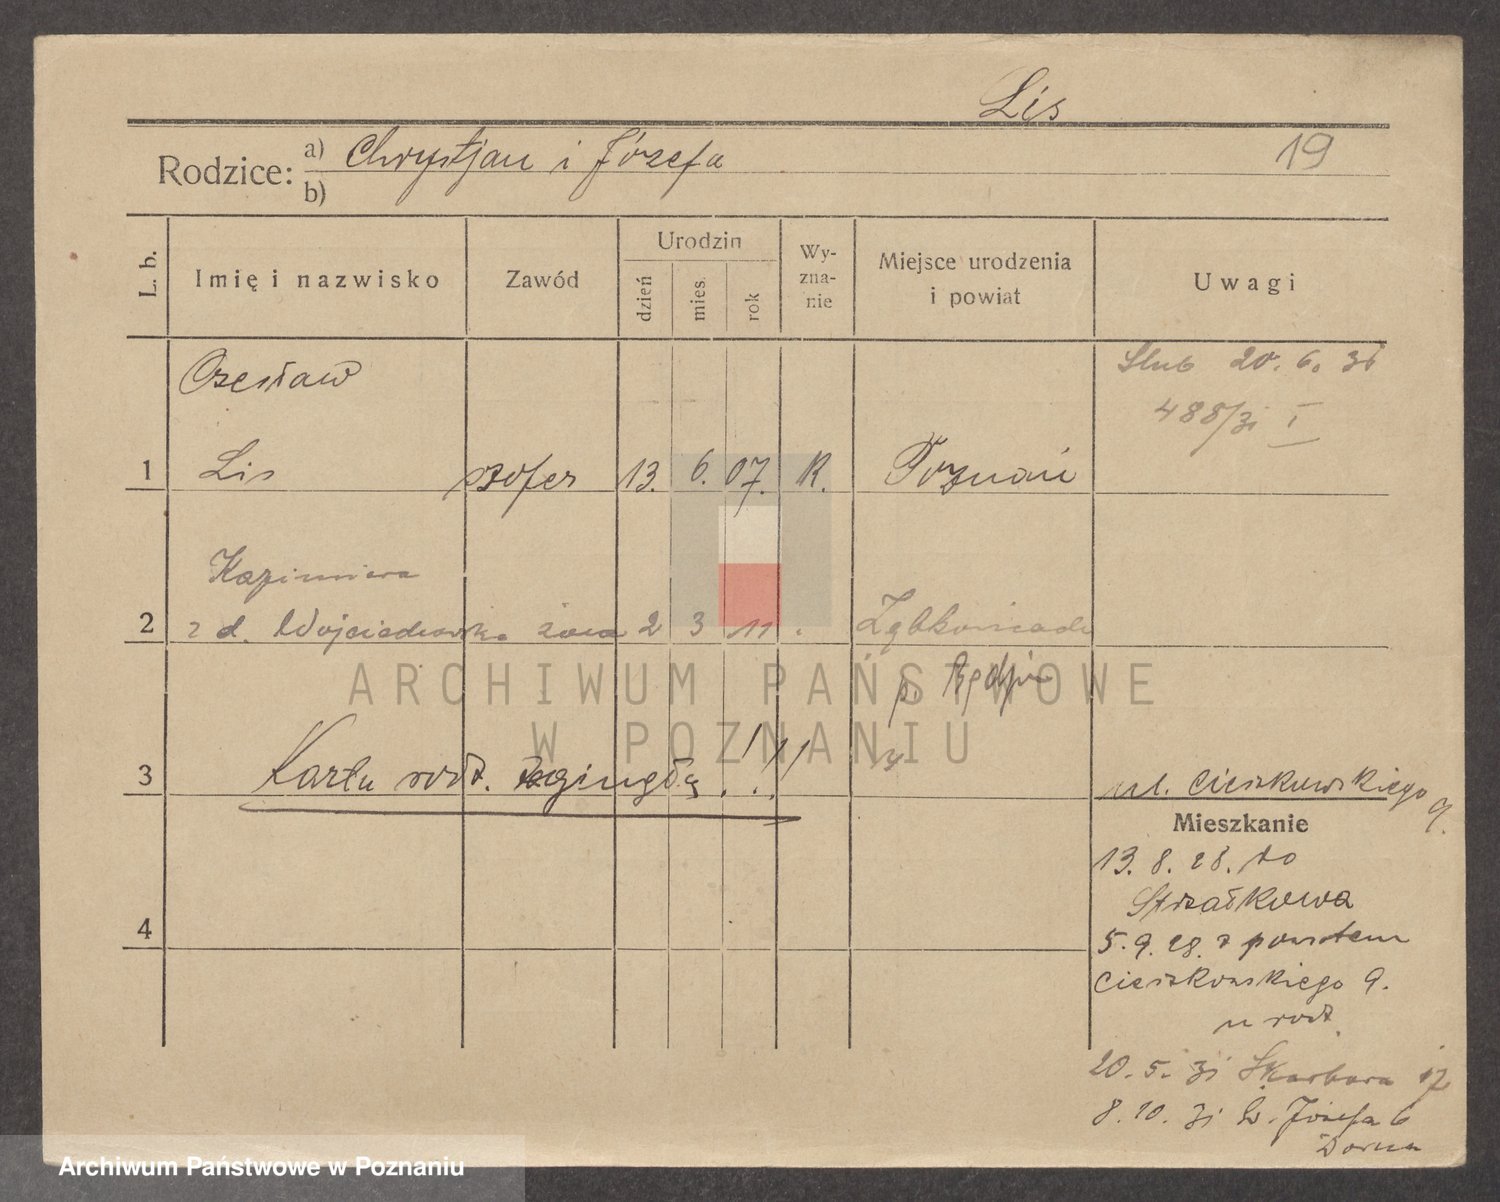 Lis
19
Rodzice: a) Chrystjan i Józefa
b)
L. b. Imię i nazwisko Zawód Urodzin dzień mies. rok Wyznanie Miejsce urodzenia i powiat Uwagi
Ślub 20. 6. 31
488/31 I
Czesław
1 Lis szofer 13. 6. 07. R. Poznań
Kazimiera
2 z d. Wojciechowska żona 2 3 11 . Ząbkowicach
p. Będzin
3 Karta rodz. zaginęła !!!
ul. Cieszkowskiego 9.
Mieszkanie
13. 8. 28. do
Strzałkowa
4
5. 9. 28. z powrotem
Cieszkowskiego 9.
u rodz.
20. 5. 31 Skarbowa 17
8. 10. 31 św. Józefa 6
ARCHIWUM PAŃSTWOWE
W POZNANIU
Archiwum Państwowe w Poznaniu